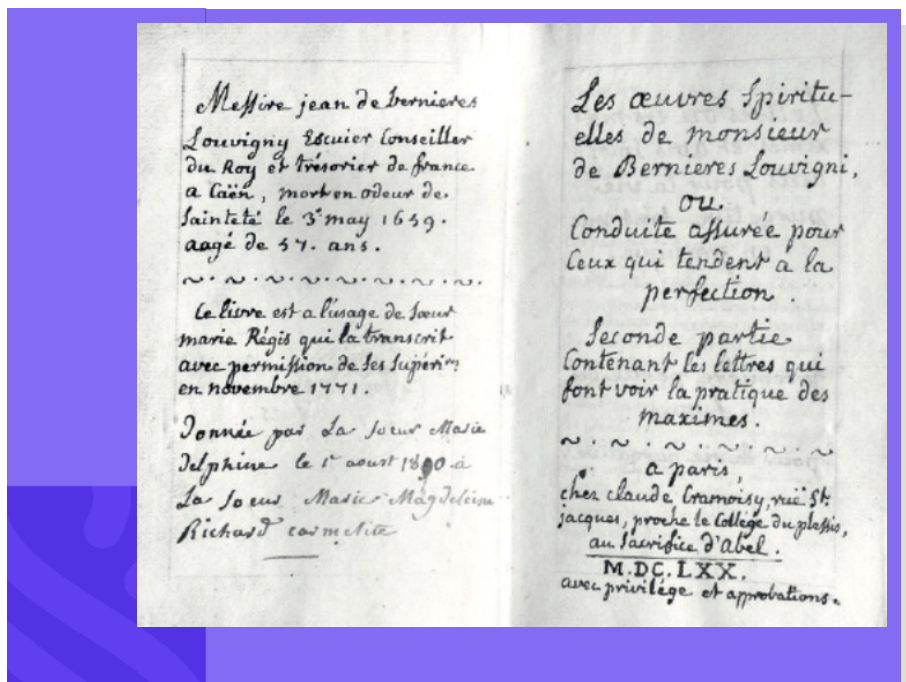 Messire jean de bernieres
Louvigny Escuier Conseiller
du Roy et trésorier de france
a Caën, mort en odeur de
Sainteté le 3e may 1659.
aagé de 57. ans.
Ce livre est a l'usage de sœur
marie Régis qui la transcrit
avec permission de ses supérirs
en novembre 1771.
Donnée par La Soeur Marie
delphine le 1r aoust a
La Soeur Marie Magdeleine
Richard carmelite
Les œuvres Spiritu-
elles de monsieur
de Bernieres Louvigni,
ou
Conduite assurée pour
Ceux qui tendent a la
perfection.
Seconde partie
Contenant les lettres qui
font voir la pratique des
maximes.
a paris,
chez claude Cramoisy, ruë St.
jacques, proche le Collége du plessis,
au sacrifice d'Abel.
M.DC.LXX.
avec privilége et approbations.